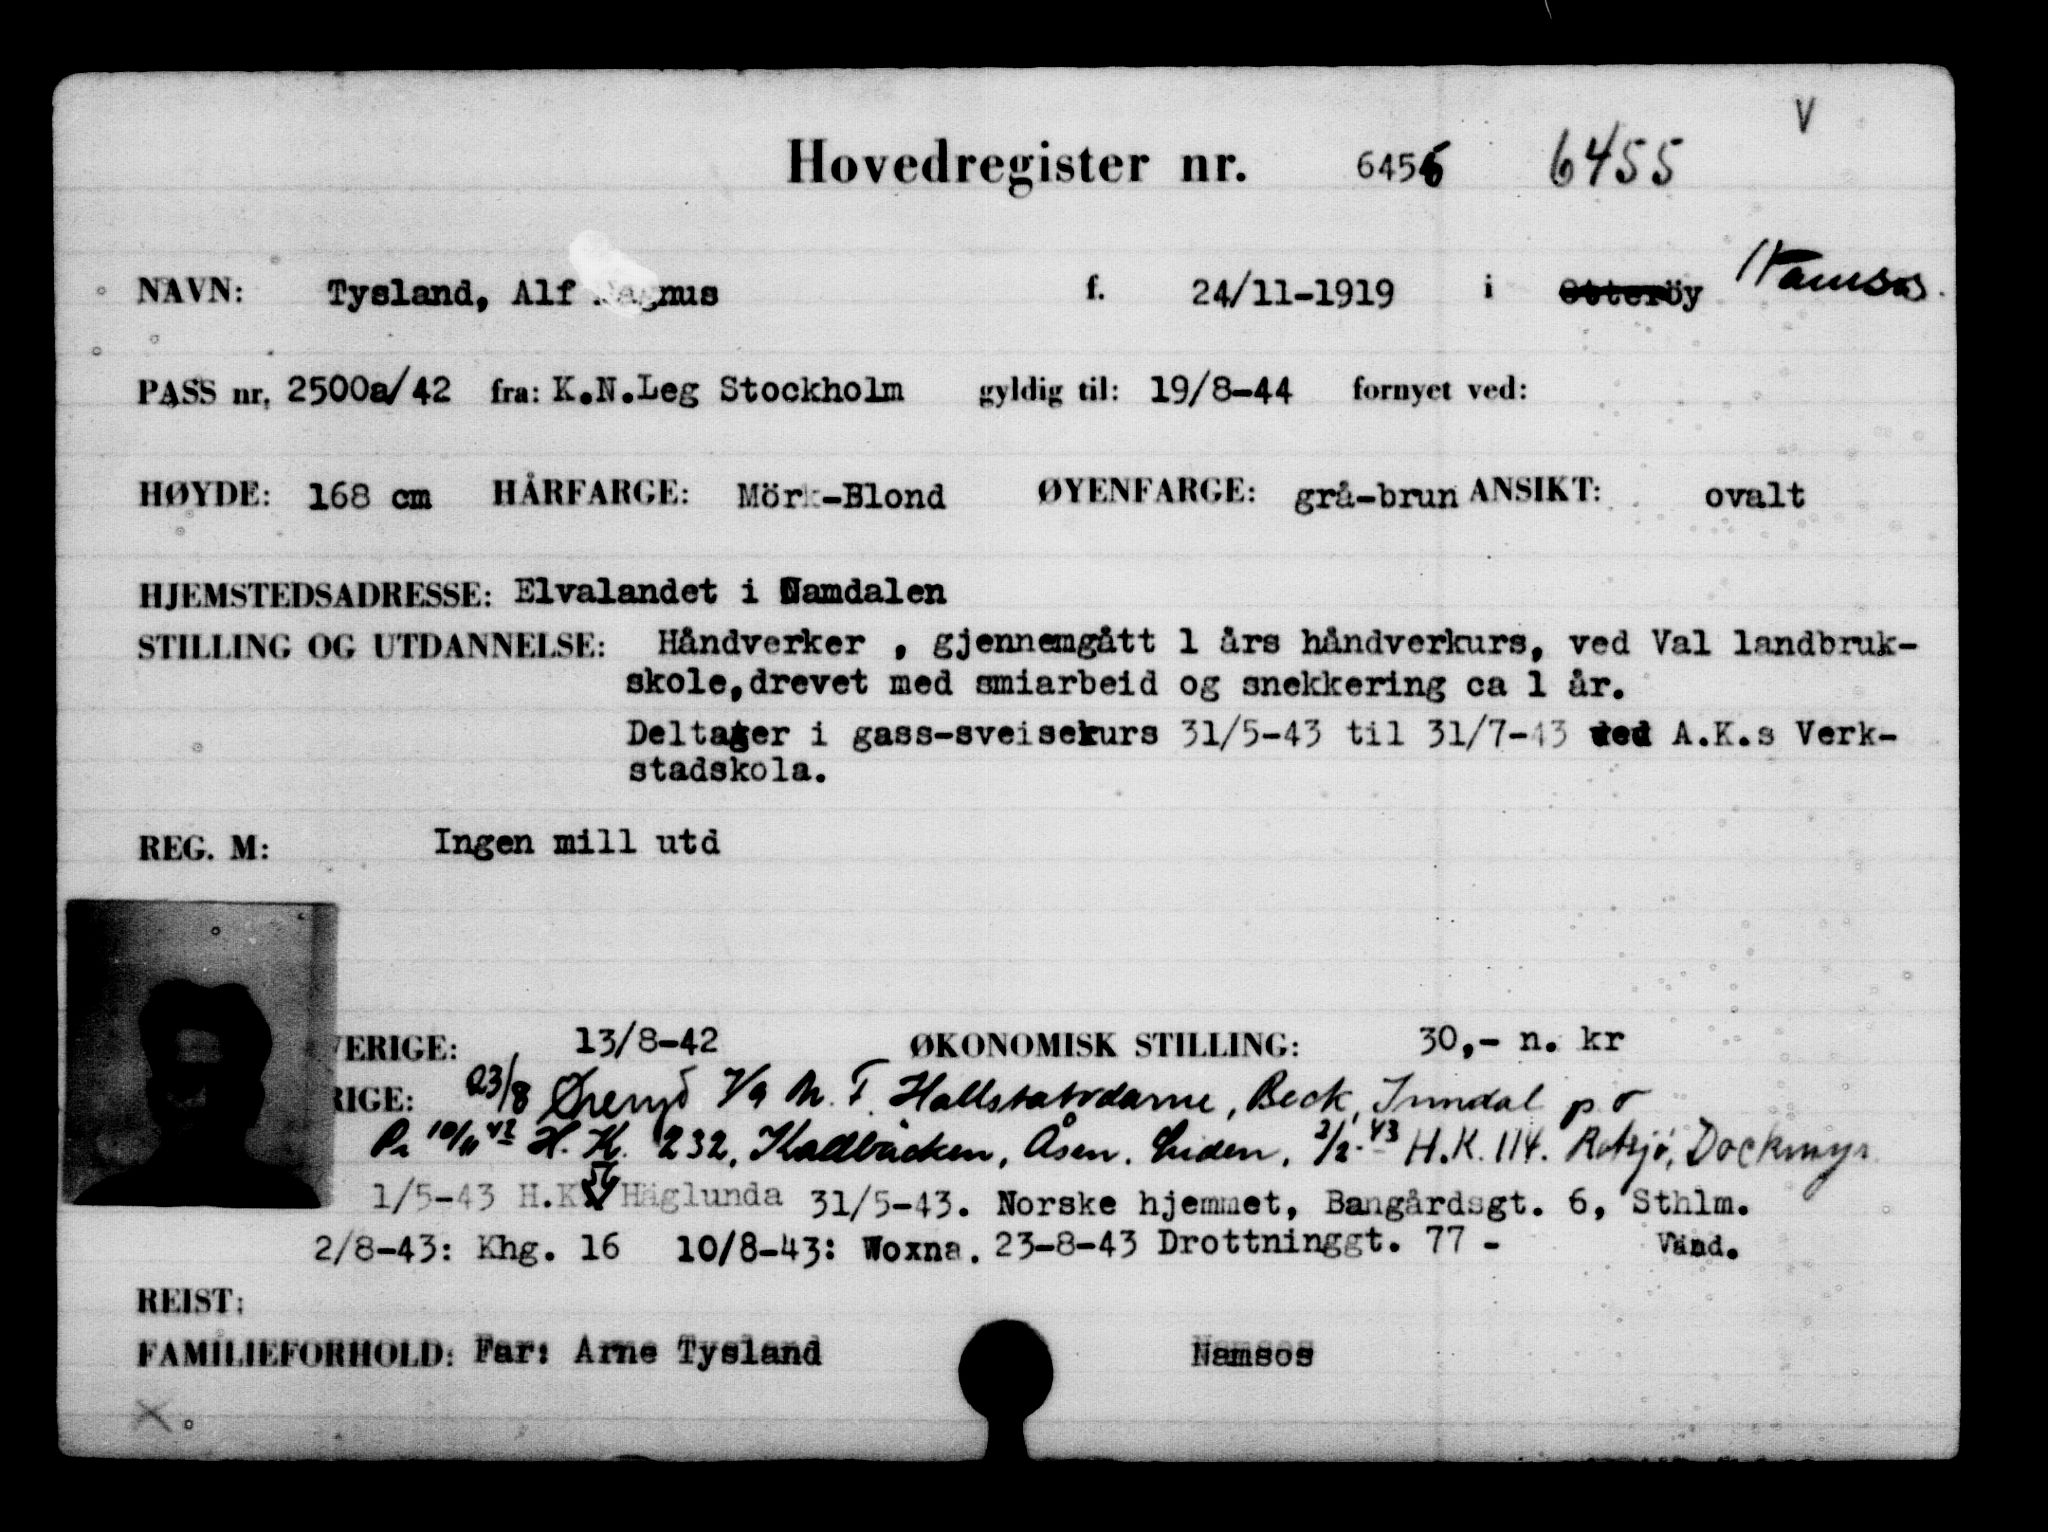 V
Hovedregister nr. 6455 6455
NAVN: Tysland, Alf Magnus f. 24/11-1919 i Otteröy Namsos.
PASS nr. 2500a/42 fra: K.N.Leg Stockholm gyldig til: 19/8-44 fornyet ved:
HØYDE: 168 cm HÅRFARGE: Mörk-Blond ØYENFARGE: grå-brun ANSIKT: ovalt
HJEMSTEDSADRESSE: Elvalandet i Namdalen
STILLING OG UTDANNELSE: Håndverker , gjennemgått 1 års håndverkurs, ved Val landbruk-
skole,drevet med smiarbeid og snekkering ca 1 år.
Deltager i gass-sveisekurs 31/5-43 til 31/7-43 ved A.K.s Verk-
stadskola.
REG. M: Ingen mill utd
VERIGE: 13/8-42 ØKONOMISK STILLING: 30,- n. kr
RIGE: 23/8 Øreryd Beck,
10/11 42 H.K. 232, Kallbäcken, Åsen. Liden. 2/2-43 H.K. 114. Rotsjö, Dockmyr
1/5-43 H.K. Häglunda 31/5-43. Norske hjemmet, Bangårdsgt. 6, Sthlm.
2/8-43: Khg. 16 10/8-43: Woxna. 23-8-43 Drottninggt. 77 - Vänd.
REIST:
FAMILIEFORHOLD: Far: Arne Tysland Namsos
X